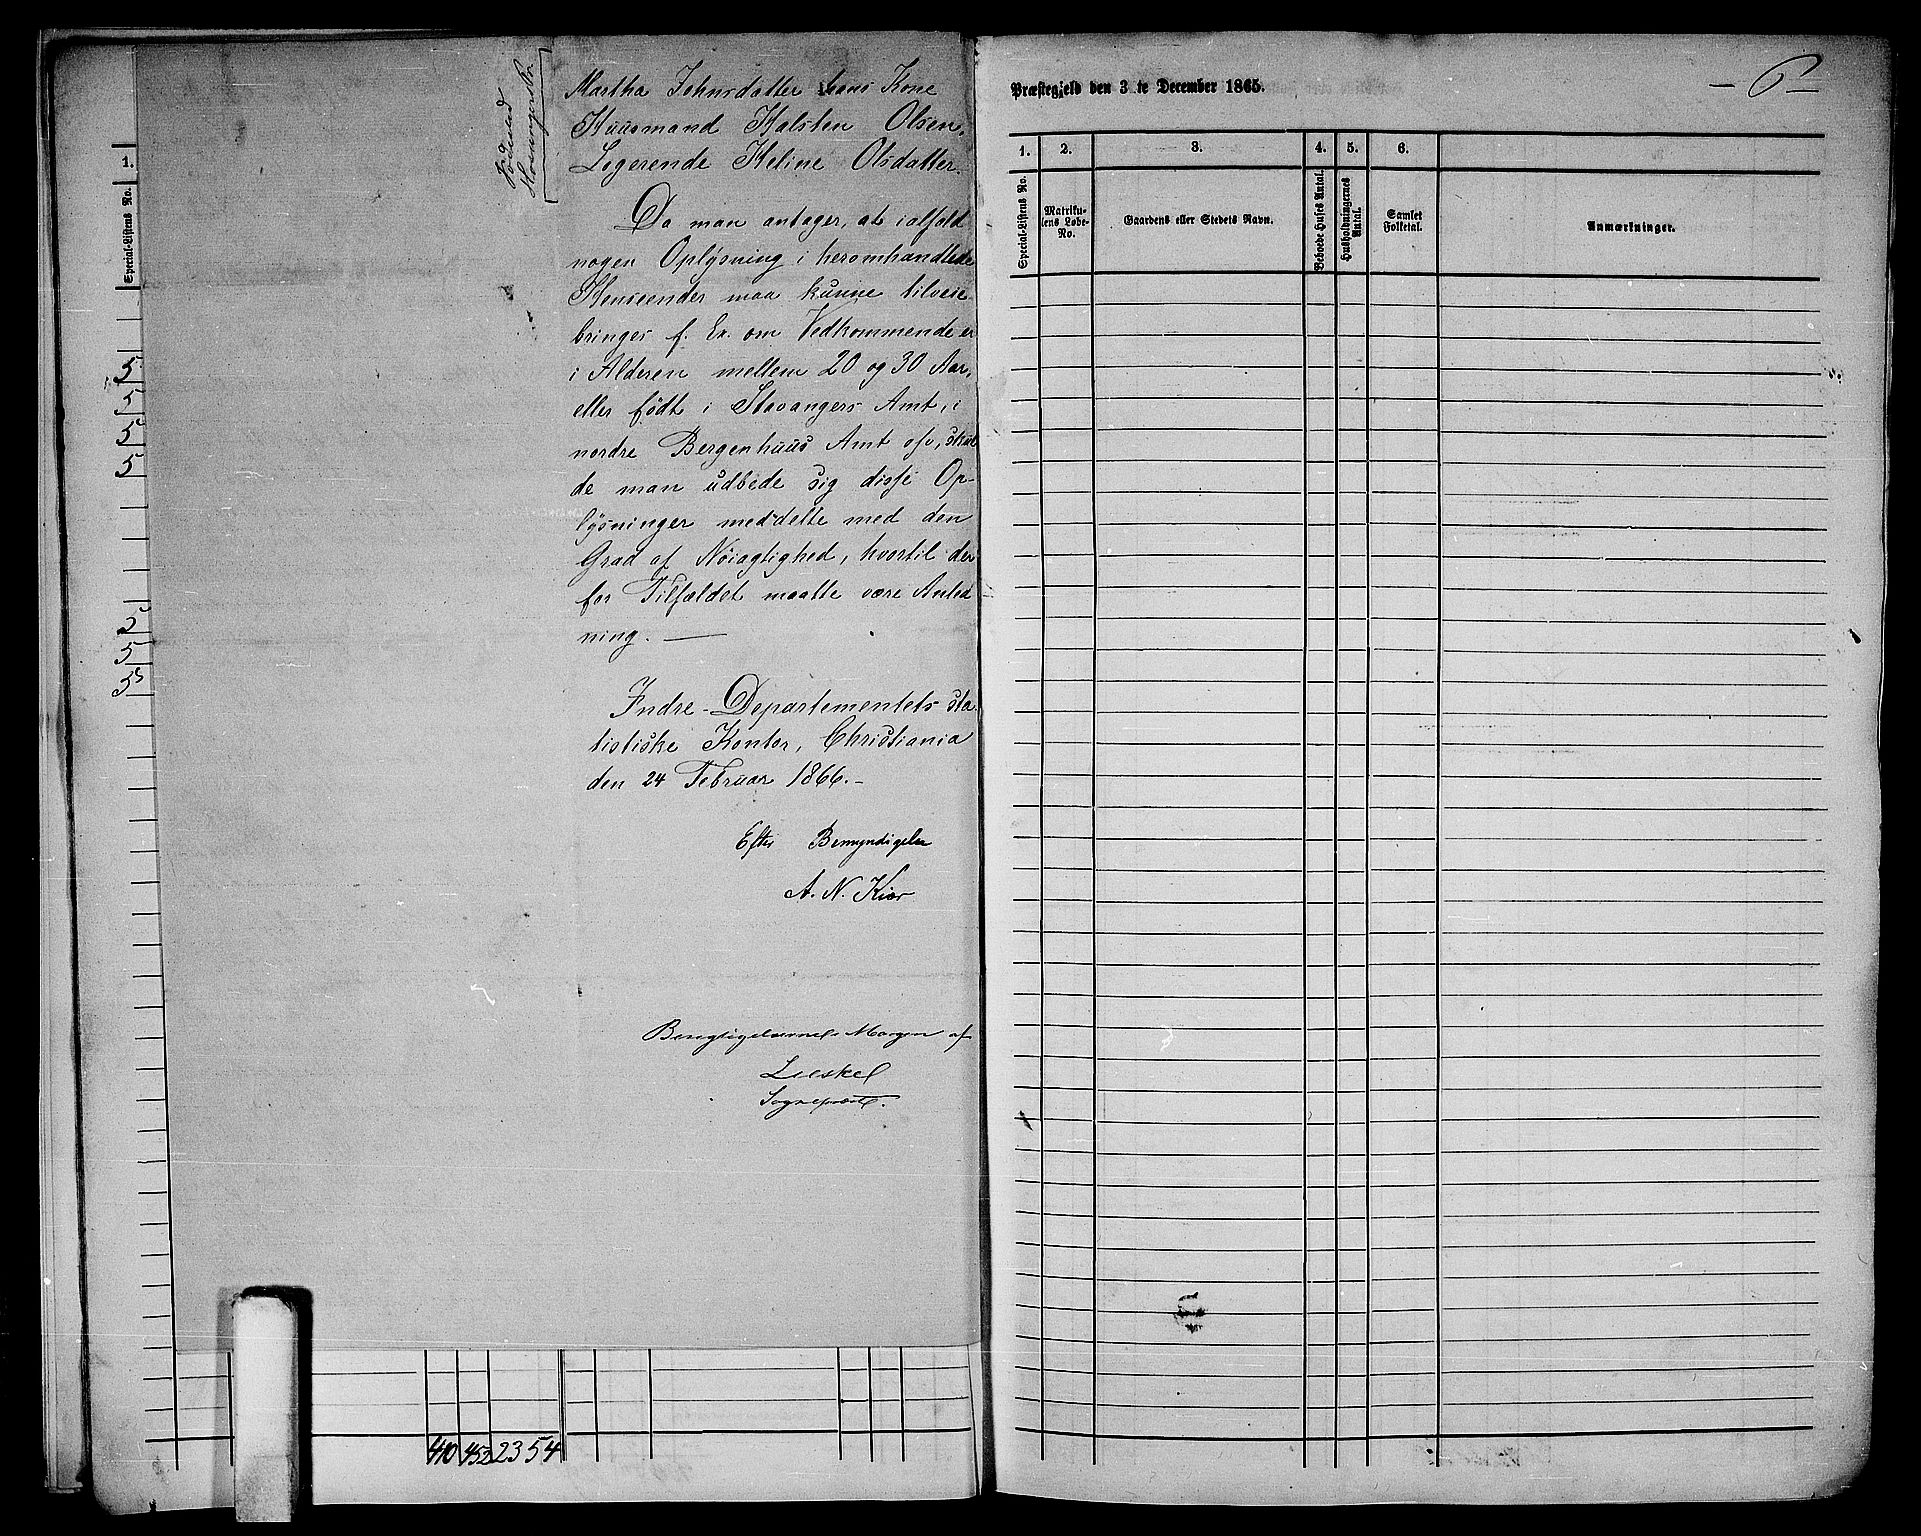 1.
Special-Listens No.
5
5
5
5
5
5
5
Martha Johnsdatter hans Kone
Huusmand Halsten Olsen.
Logerende Heline Olsdatter.
Da man antager, at ialfald
nogen Oplysning i heromhandlede
Henseender maa kunne tilveie-
bringes f. Ex. om Vedkommende er
i Alderen mellem 20 og 30 Aar,
eller født i Stavangers Amt, i
nordre Bergenhuus Amt osv, skul
de man udbede sig disse Op-
lysninger meddelte med den
Grad af Nöiagtighed, hvortil der
for Tilfældet maatte være Anled
ning. —
Indre-Departementets sta
tistiske Kontor, Christiania
den 24 Februar 1866.-
Efter Bemyndigelse
A. N. Kiær
Margen af
Sognepræst.
410 452 2354
Præstegjeld den 3 te December 1865.
- 6 -
1. 2. 3. 4. 5. 6.
Special-Listens No.
Matriku-
lens Løbe-
No.
Gaardens eller Stedets Navn.
Beboede Huses Antal.
Husholdningernes
Antal.
Samlet
Folketal.
Anmærkninger.